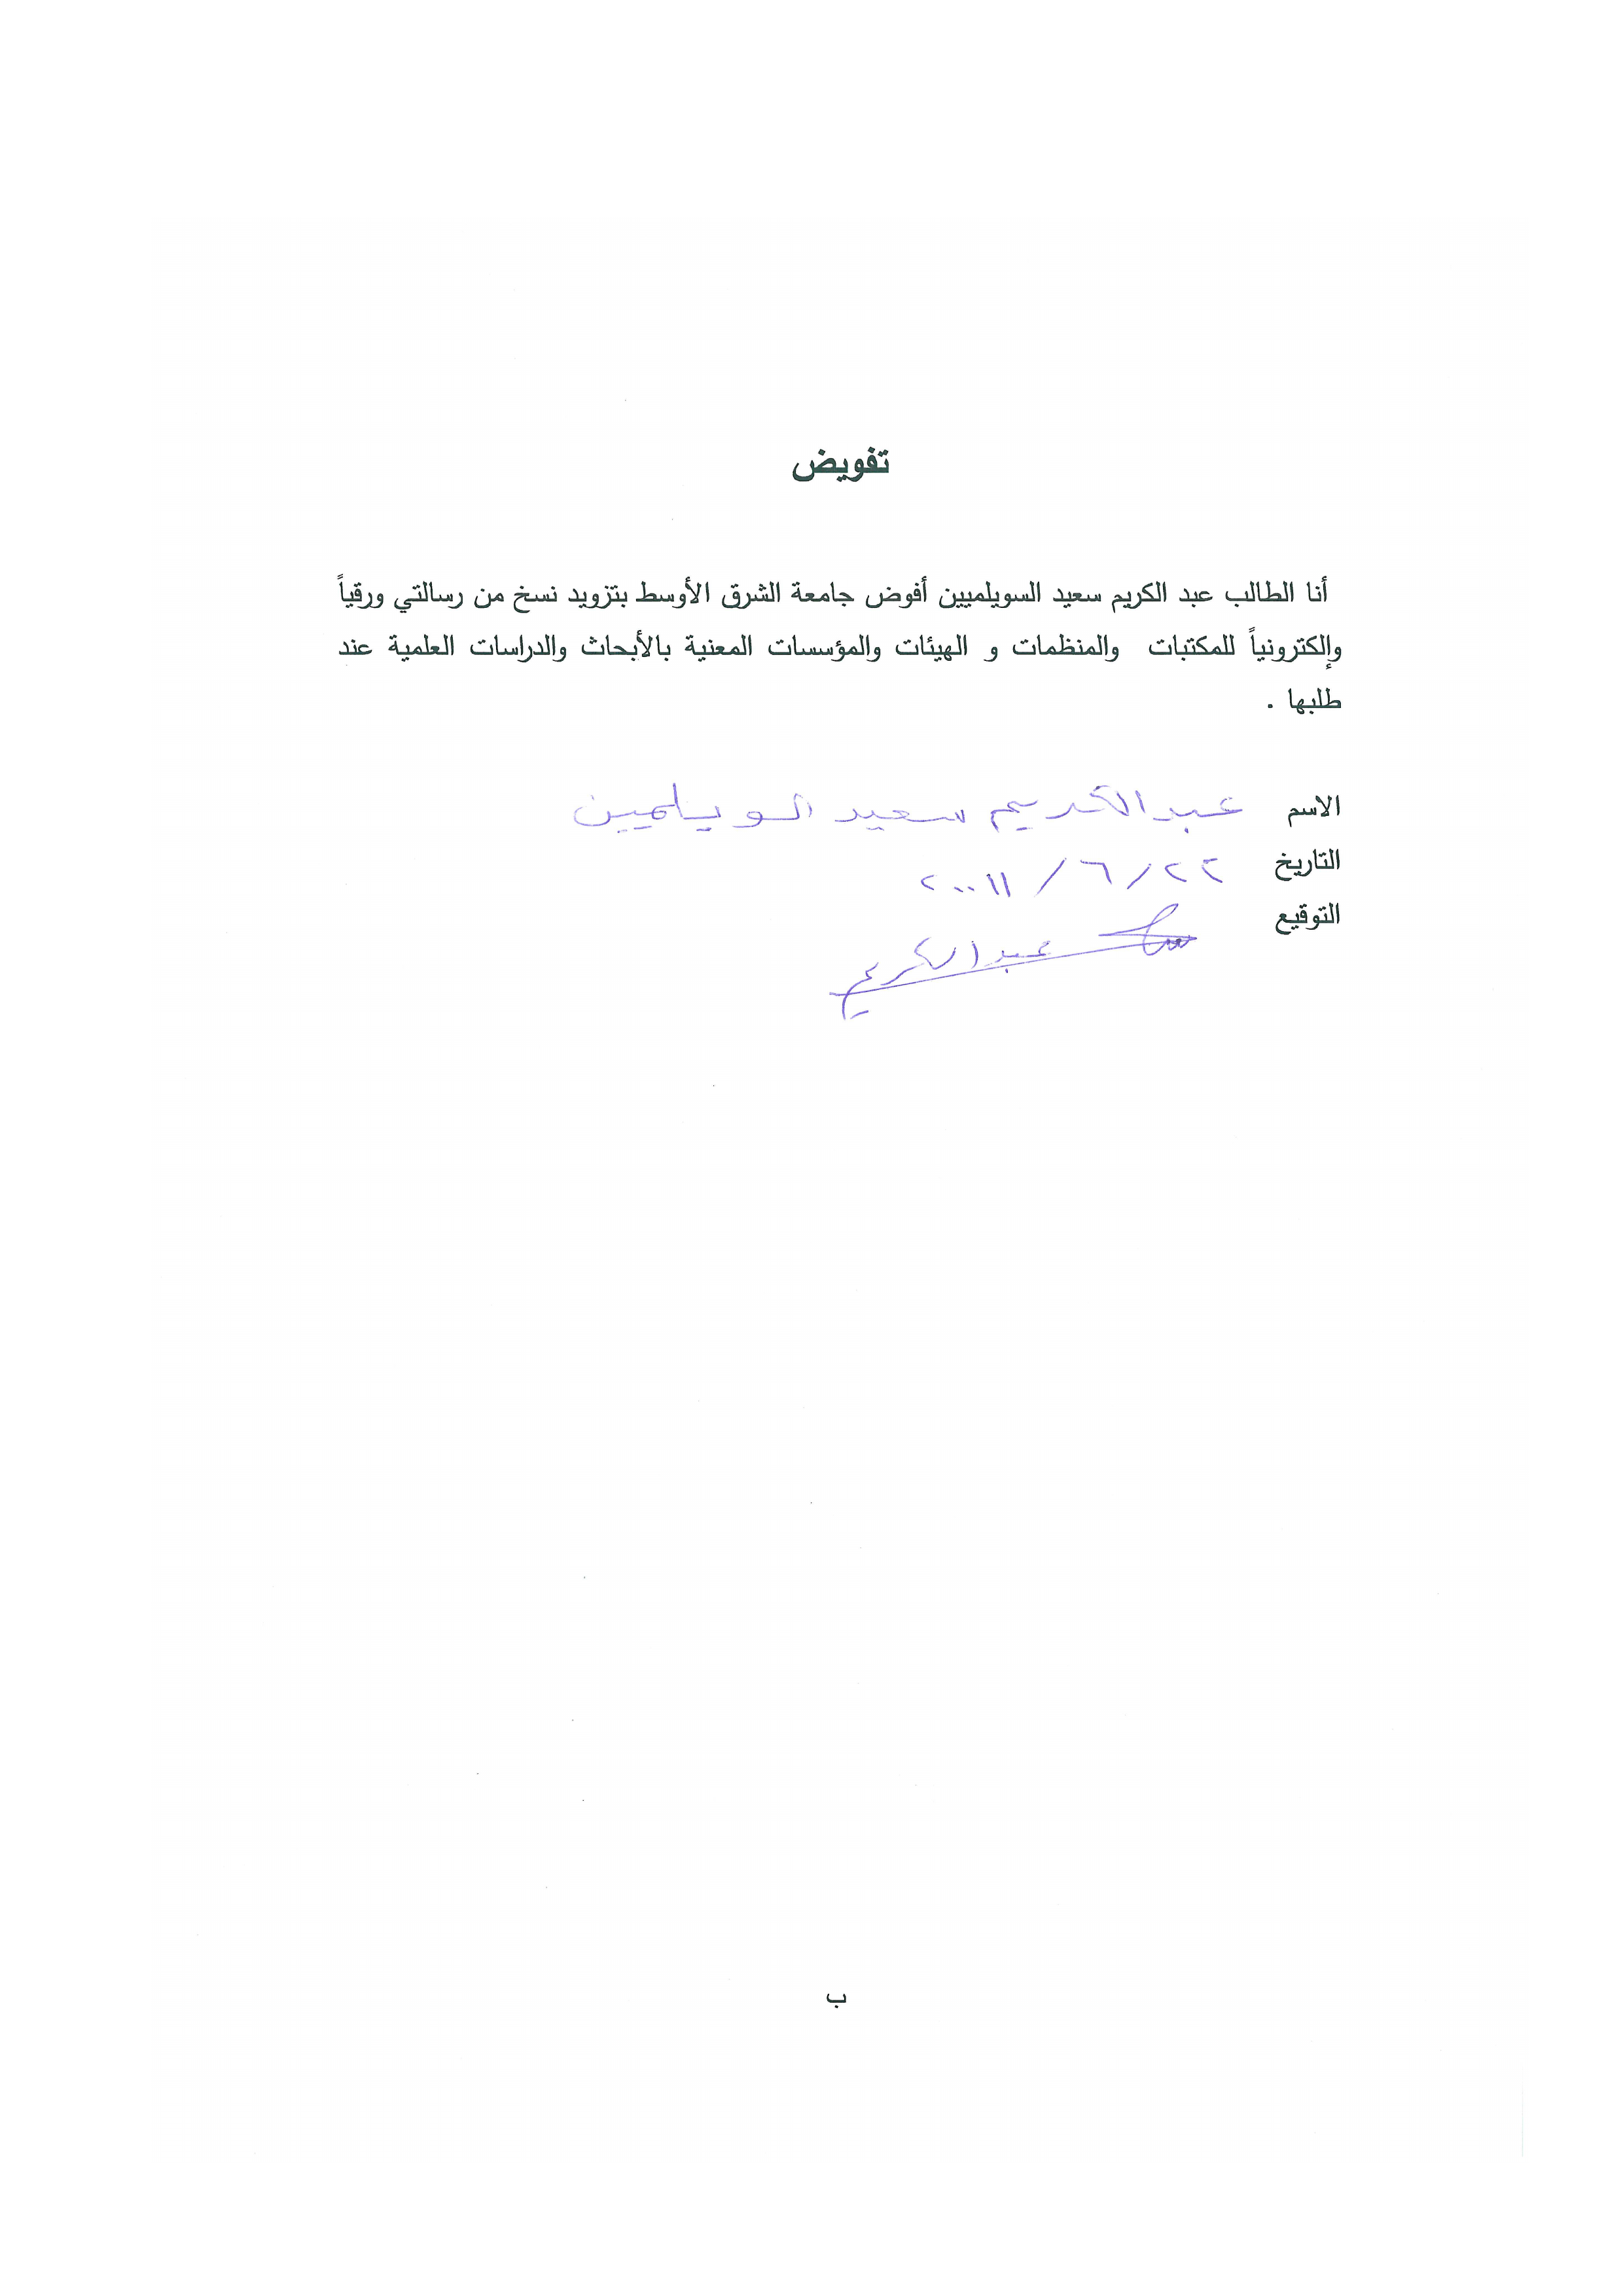 تفويض
أنا الطالب عبد الكريم سعيد السويلميين أفوض جامعة الشرق الأوسط بتزويد نسخ من رسالتي ورقياً
وإلكترونياً للمكتبات والمنظمات و الهيئات والمؤسسات المعنية بالأبحاث والدراسات العلمية عند
طلبها .
الاسم عبدالكريم سعيد السويلميين
التاريخ ٢٢/٦/٢٠٠١١
التوقيع عبدالكريم
ب